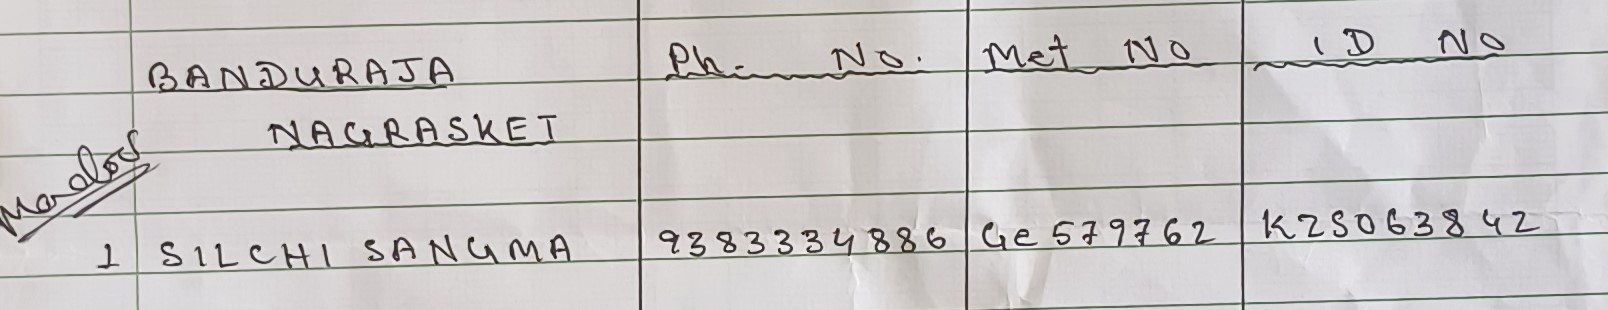 BANDURAJA Ph. No. Met No ID NO
NAGRASKET
1 SILCHI SANGMA 9383334886 Ge 579762 KZS063842